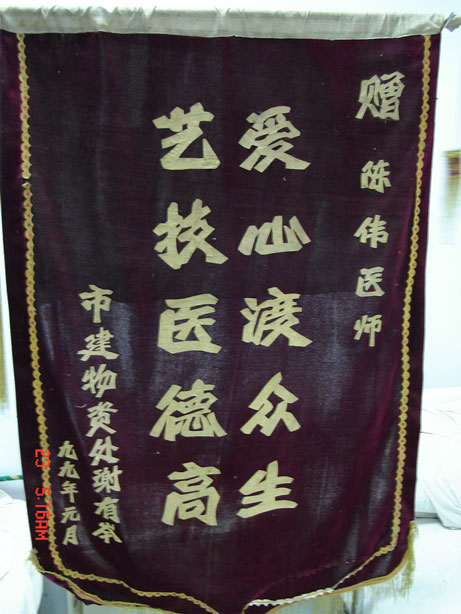 赠陈伟医师
爱心渡众生
艺技医德高
市建物资处谢有
九九年元月
23 5:16AM